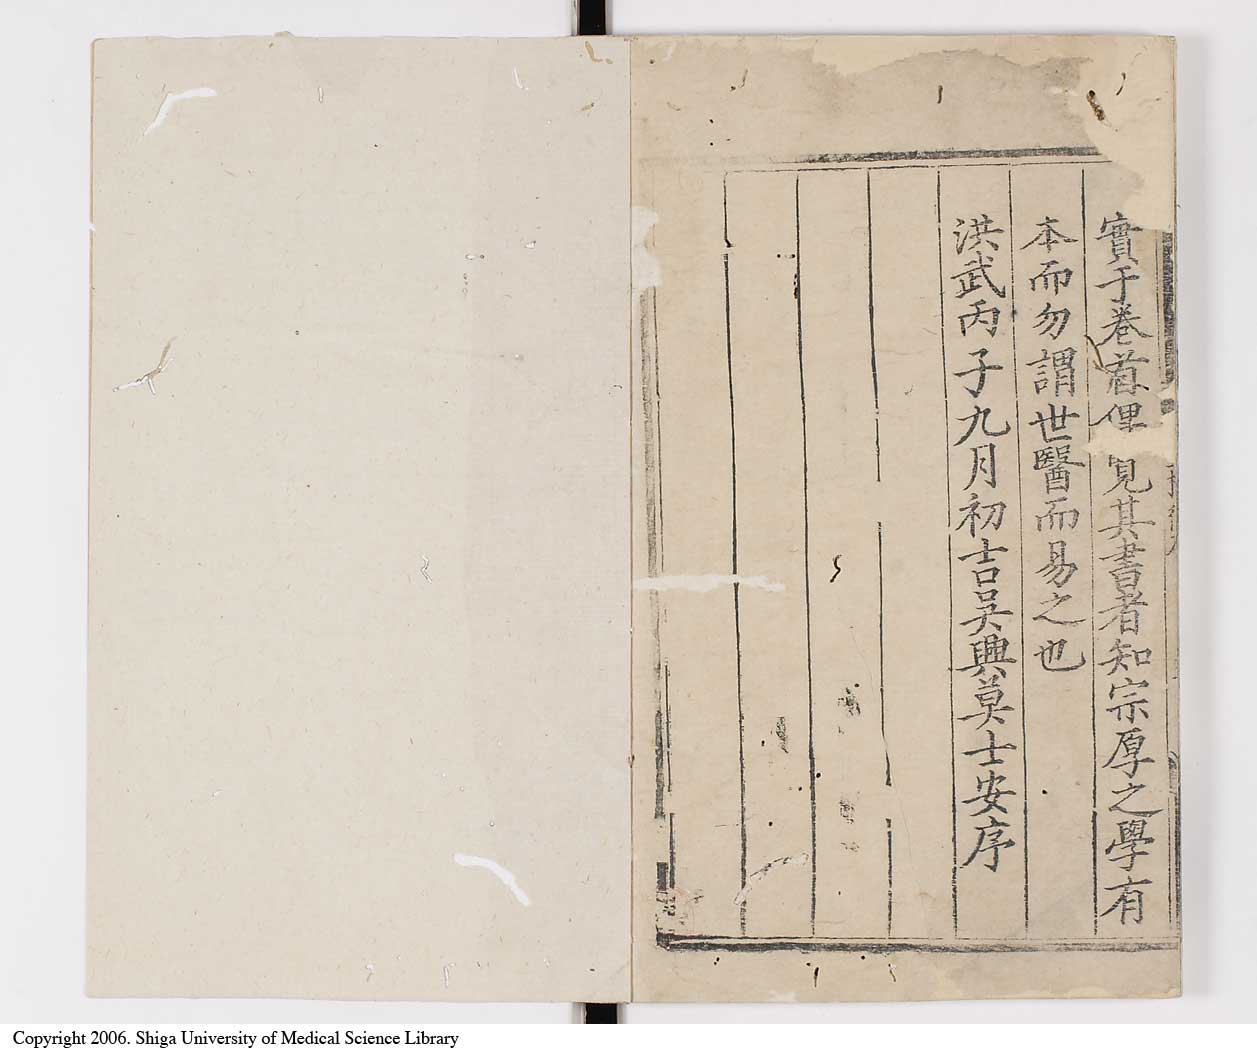 實于卷首俚覓其書者知宗厚之學有
本而勿謂世醫而易之也
洪武丙子九月初吉吳興莫士安序
Copyright 2006. Shiga University of Medical Science Library